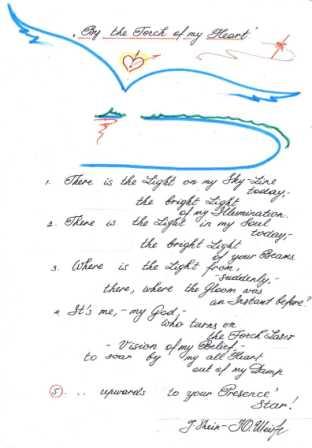 „By the Torch of my Heart"
1. There is the Light on my Sky-Line
today,-
the bright Light
of my Illumination.
2. There is the Light in my Soul
today,-
the bright Light
of your Beams
3. Where is the Light from,
-suddenly,-
there, where the Gloom was
an Instant before?
4. It's me,- my God,-
who turns on
the Torch Laser
- Vision of my Belief,-
to soar by my all Heart
out of my Damp
5. .. upwards to your Presence'
Star!